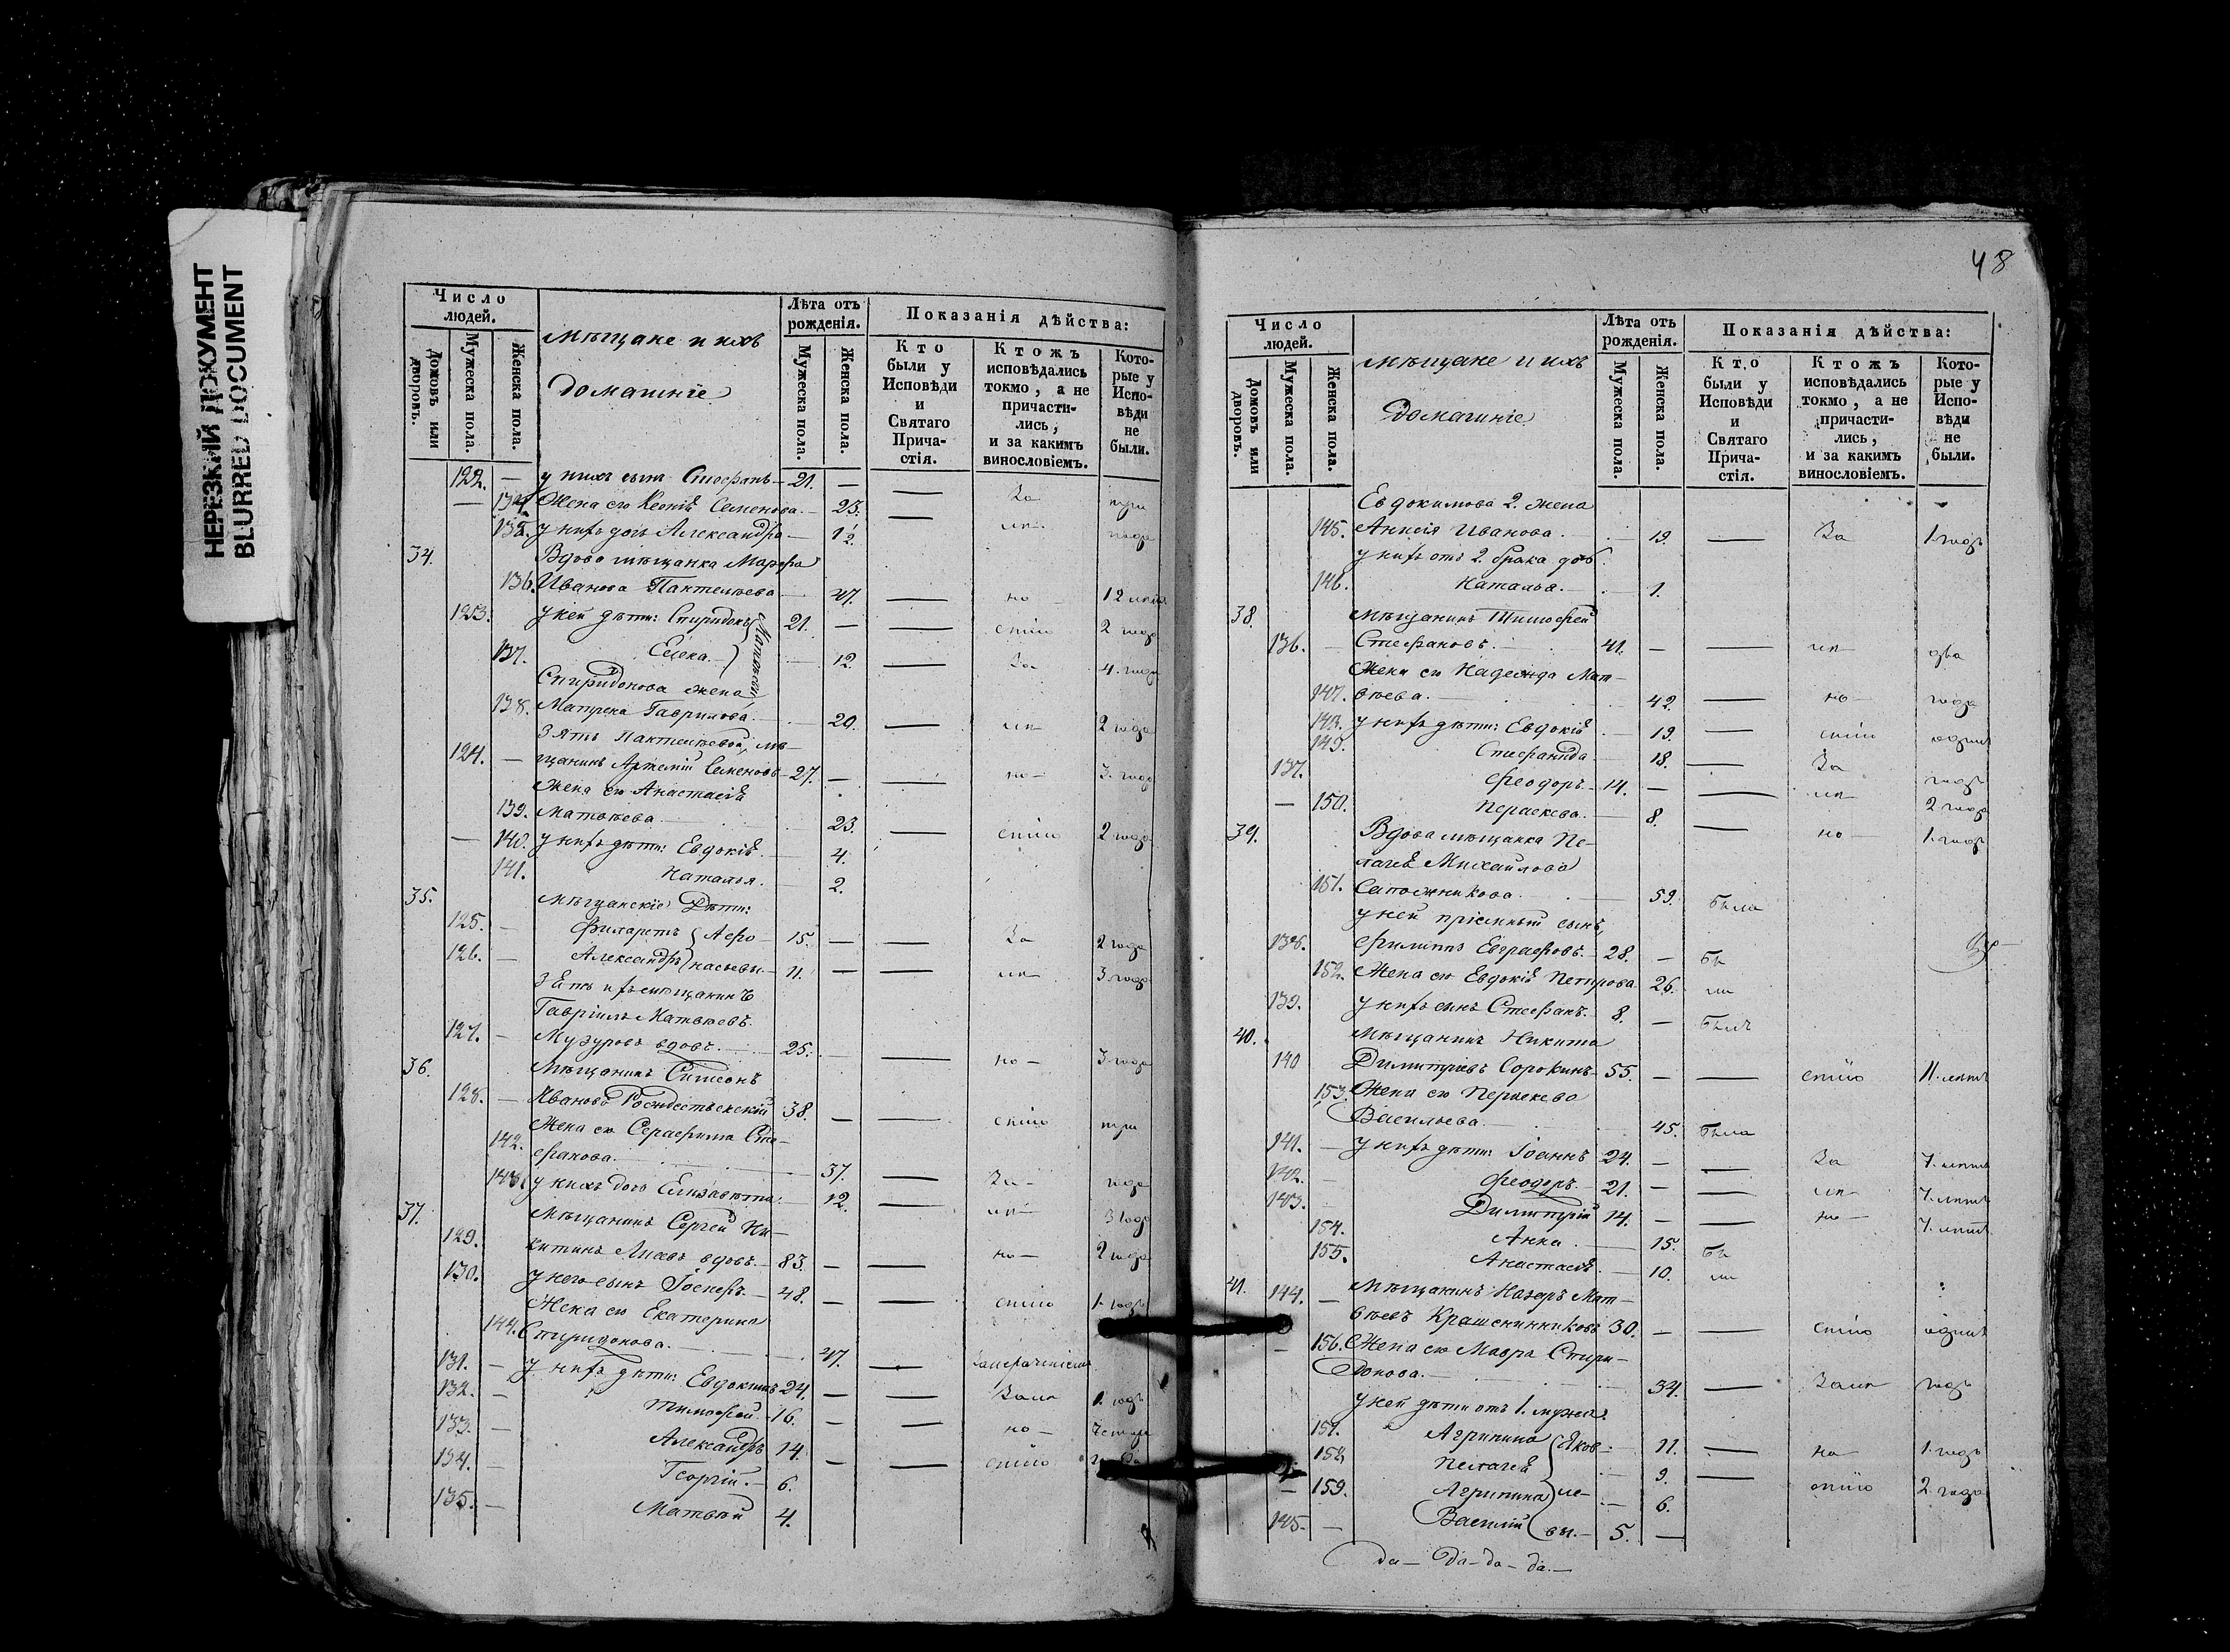 НЕРЕЗКИЙ ДОКУМЕНТ
BLURRED DOCUMENT
Число людей.
мѣщане и ихъ домашніе
Лѣта отъ рожденія.
Показанія дѣйства:
Домовъ или дворовъ.
Мужеска пола.
Женска пола.
Мужеска пола.
Женска пола.
Кто были у Исповѣди и Святаго Прича-стія.
Ктожъ исповѣдались токмо, а не причасти-лись, и за какимъ винословіемъ.
Кото-рые у Испо-вѣди не были.
122. — у нихъ сынъ Стефанъ — 21. — — За три
— 134. Жена его Ксенія Семенова. — 23. — ип года
135. у нихъ дочь Александра — 1½.
34. Вдова мѣщанка Марфа
136. Иванова Пантелѣева — 47. — но — 12 лѣтъ
123. у ней дѣти: Спиридонъ 21. — — стію 2 года
137. Елена. Матвѣевы — 12. — За 4. года
Спиридонова жена
138. Матрена Гаврилова. — 20. — ип 2 года
Зять Пантелѣевой, мѣ-
124. — щанинъ Артемій Семеновъ — 27. — — но — 3. года
Жена его Анастасія
139. Матвѣева. 23. — стію 2 года
— 140. у нихъ дѣти: Евдокія. — 4.
141. Наталья. — 2.
35. Мѣщанскіе Дѣти:
125. — Филаретъ Аѳо- 15. — — За 2 года
126. — Александръ насьевы. — 11. — — ип 3 года
Зять ихъ мѣщанинъ
Гавріилъ Матвѣевъ
127. — Музуровъ вдовъ. 25. — — но — 3 года
36. Мѣщанинъ Симеонъ
128. — Ивановъ Рождественскій 38. — — стію три
Жена его Серафима Сте-
142. фанова. 37. — За — года
143. у нихъ дочь Елизавета. — 12. — ип 3 года
37. Мѣщанинъ Сергей Ни-
129. китинъ вдовъ. — 83. — — но — 2 года
130. у него сынъ Іосифъ. — 48. — — стію 1. годъ
Жена его Екатерина
144. Спиридонова. 47. —
131. — у нихъ дѣти: Евдокимъ 24. — — Заип 1. годъ
132. — Тимофей. — 16. — — но —
133. — Александръ 14. — — стію
134. — Георгій. — 6.
135. — Матвѣй 4.
48
Число людей.
мѣщане и ихъ домашніе
Лѣта отъ рожденія.
Показанія дѣйства:
Домовъ или дворовъ.
Мужеска пола.
Женска пола.
Мужеска пола.
Женска пола.
Кто были у Исповѣди и Святаго Прича-стія.
Ктожъ исповѣдались токмо, а не причасти-лись, и за какимъ винословіемъ.
Кото-рые у Испо-вѣди не были.
Евдокимова 2. жена
145. Анисія Иванова. — 19. — За 1. годъ
у нихъ отъ 2. брака дочь
146. Наталья. — 1.
38. Мѣщанинъ Тимофей
136. — Стефановъ. 41. — — ип два
Жена его Надежда Мат-
147. вѣева. 42. — но — года
148. у нихъ дѣти: Евдокія — 19. — стію одинъ
149. Стефанида — 18. — За годъ
137. Феодоръ. — 14. — — ип 2 года
— 150. Параскева. — 8. — но — 1. годъ
39. Вдова мѣщанка Пе-
лагея Михайлова
151. Сапожникова. — 59. Была
у ней пріемный сынъ
138. Филиппъ Евграфовъ. — 28. — Бы
152. Жена его Евдокія Петрова 26. ли
139. у нихъ сынъ Стефанъ. — 8. — Былъ
40. Мѣщанинъ Никита
140 Димитріевъ Сорокинъ — 55. — — стію 11. лѣтъ
153. Жена его Параскева
Васильева. 45. Была
141. — у нихъ дѣти: Іоаннъ 24. — — За 7. лѣтъ
142. — Феодоръ. — 21. — — ип 7. лѣтъ
143. — Димитрій 14. — — но — 7. лѣтъ
154. Анна. — 15. Бы
155. Анастасія. — 10. ли
41. 144. — Мѣщанинъ Назаръ Мат-
вѣевъ Крашенинниковъ 30. — — стію одинъ
— 156. Жена его Мавра Спири-
донова. 34. — Заип годъ
у ней дѣти отъ 1. мужа:
157. Агрипина Яков- 11. — но — 1. годъ
158. Пелагея — 9. — стію 2. года
— 159. Агрипина ле- — 6.
145. — Василій вы. — 5. —
да — да — да — да. —